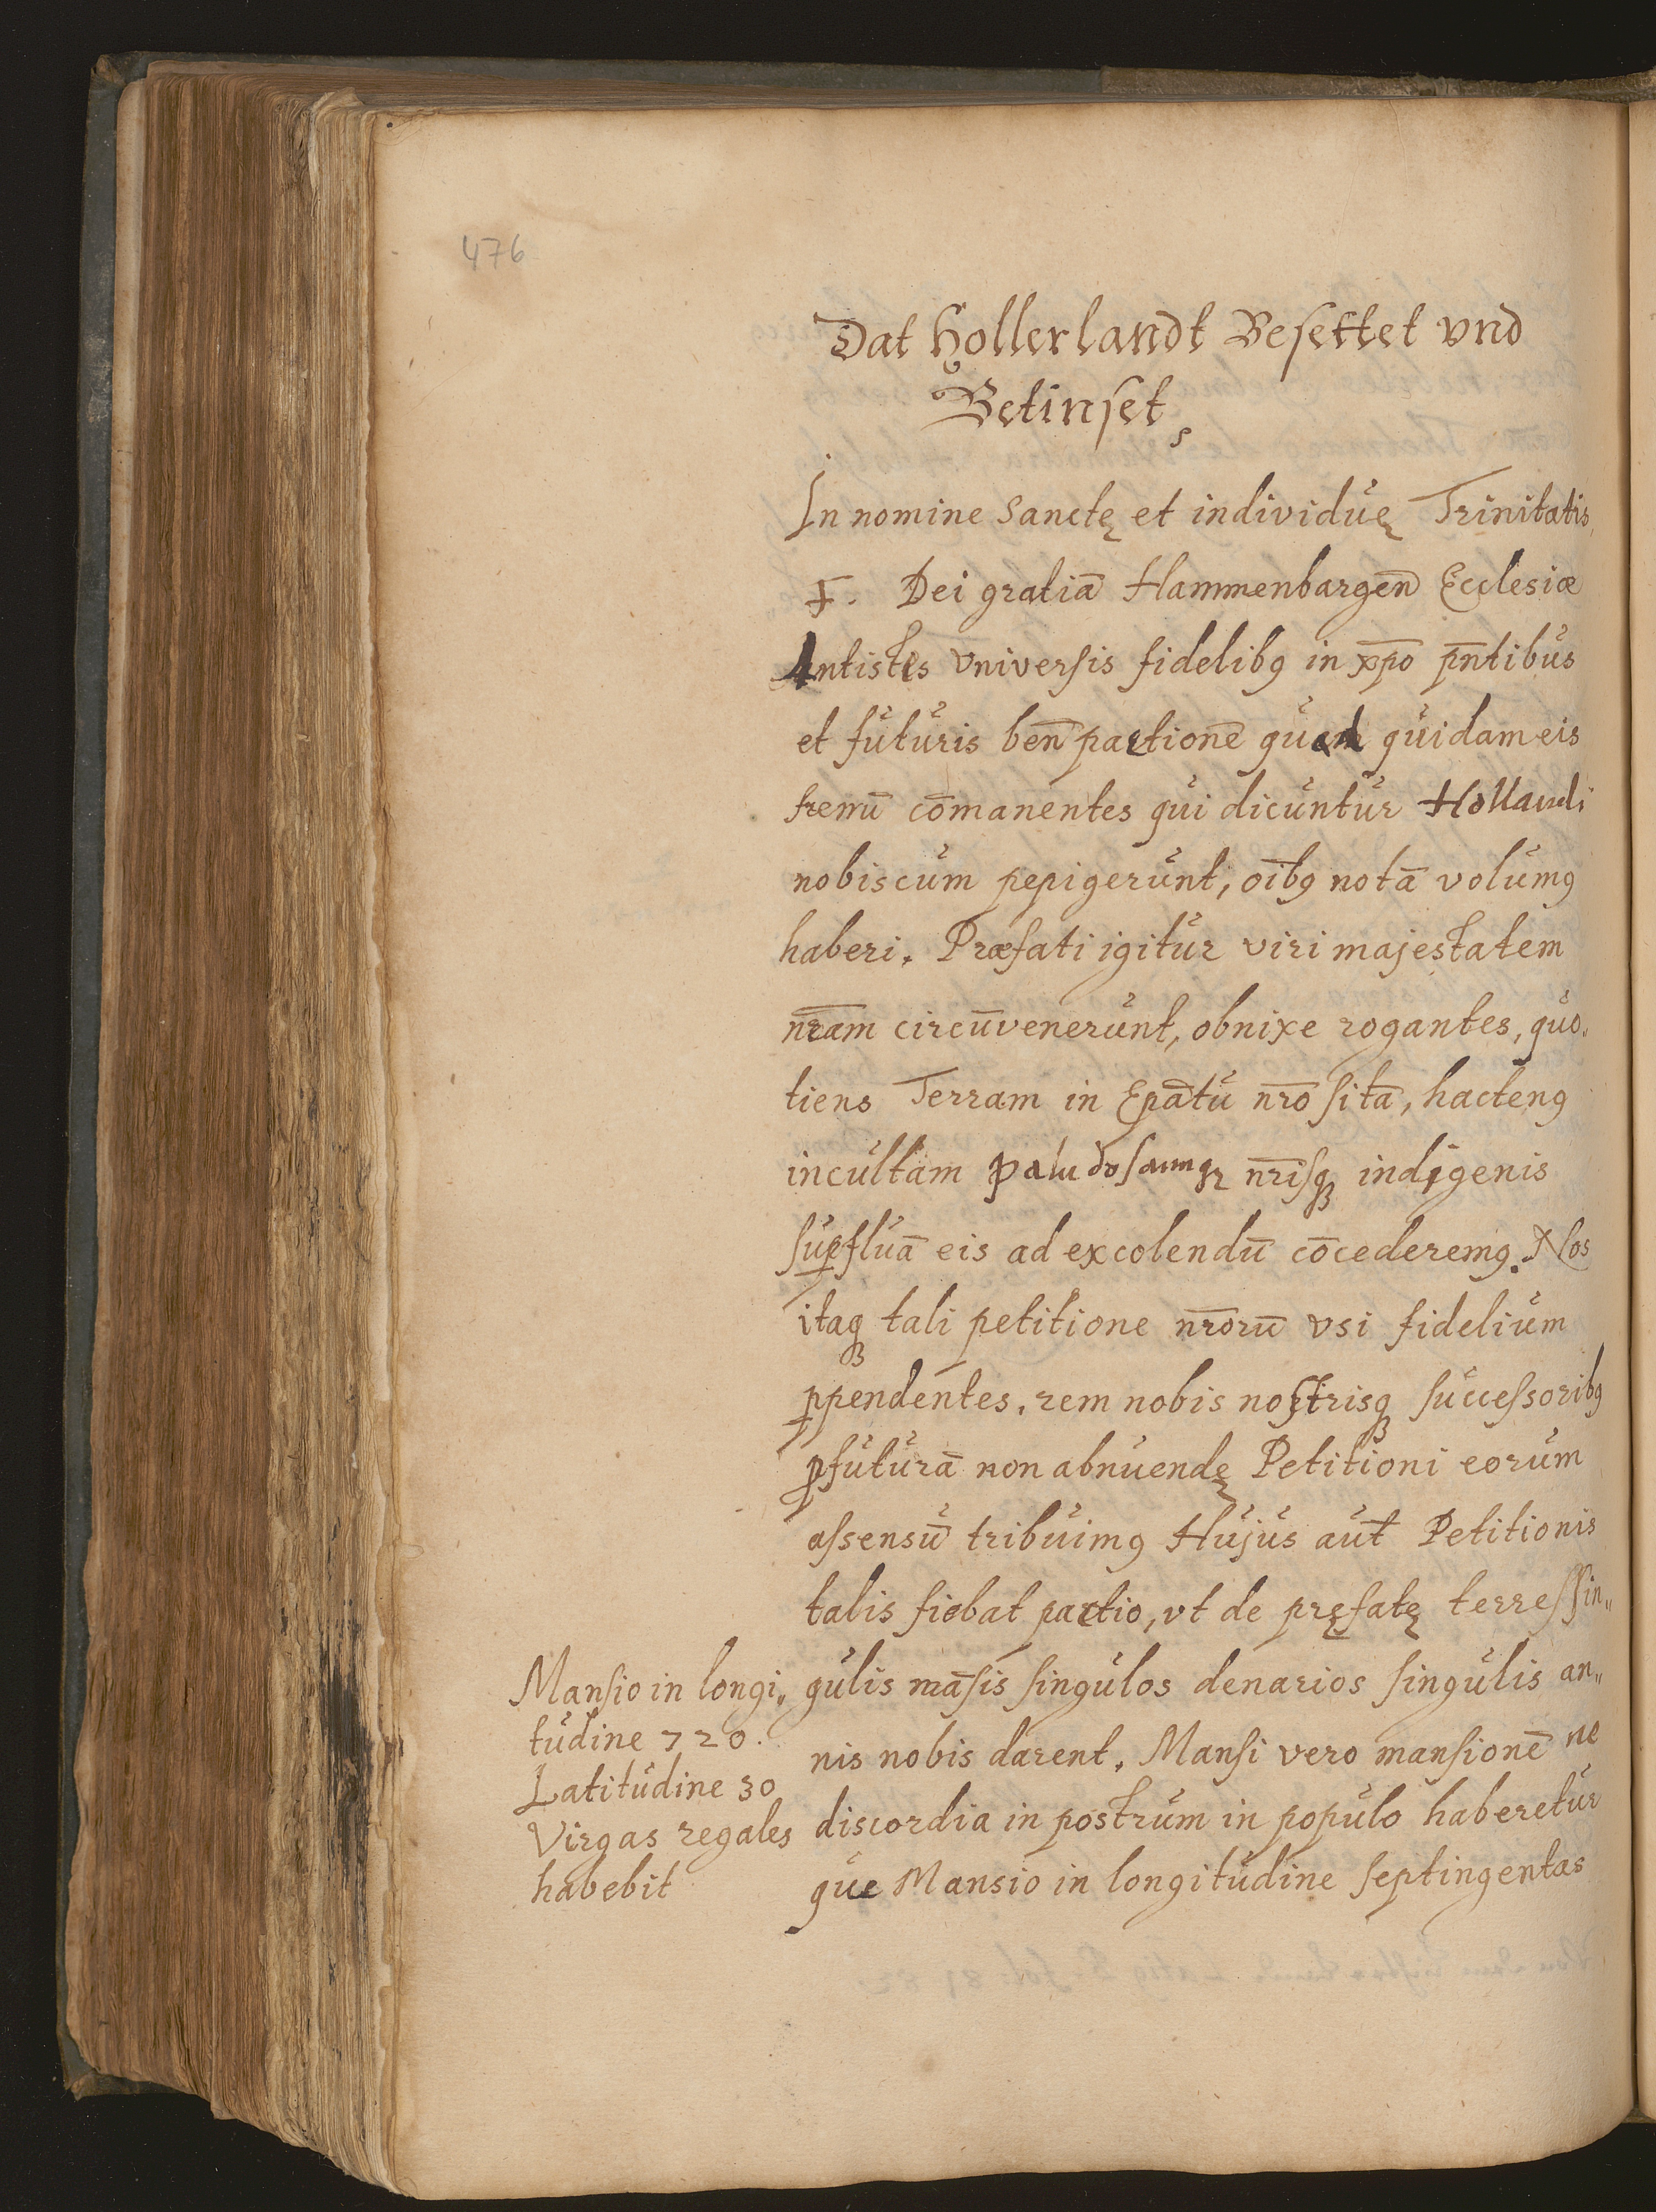 476
Dat Hollerlandt Besettet vnd
Betinset
In nomine Sanctę et individuę Trinitatis
F. Dei gratiā Hammenbargen̄ Ecclesiæ
Antistes Vniversis fidelibꝰ in xp̄o pn̄tibus
et futuris ben̄ pactionē quam quidam eis
fremū com̄anentes qui dicuntur Hollandi
nobiscum pepigerunt, oībꝰ notā volumꝰ
haberi. Præfati igitur viri majestatem
nr̄am circūvenerunt, obnixe rogantes, quo„
tiens Terram in Ep̄atu nr̄o sitā, hactenꝰ
incultam paludosamqꝫ nr̄isqꝫ indigenis
suꝑfluā eis ad excolendū cōcederemꝰ. Nos
itaqꝫ tali petitione nr̄orū vsi fidelium
ꝑpendentes, rem nobis nostrisqꝫ successoribꝰ
ꝓfuturā non abnuendę Petitioni eorum
assensū tribuimꝰ Hujus aut̄ Petitionis
talis fiebat pactio, vt de pręfatę terre sin„
Mansio in longi„
tudine 720.
Latitudine 30
Virgas regales
habebit
gulis māsis singulos denarios singulis an„
nis nobis darent. Mansi vero mansionē ne
discordia in postrum in populo haberetur
que Mansio in longitudine septingentas